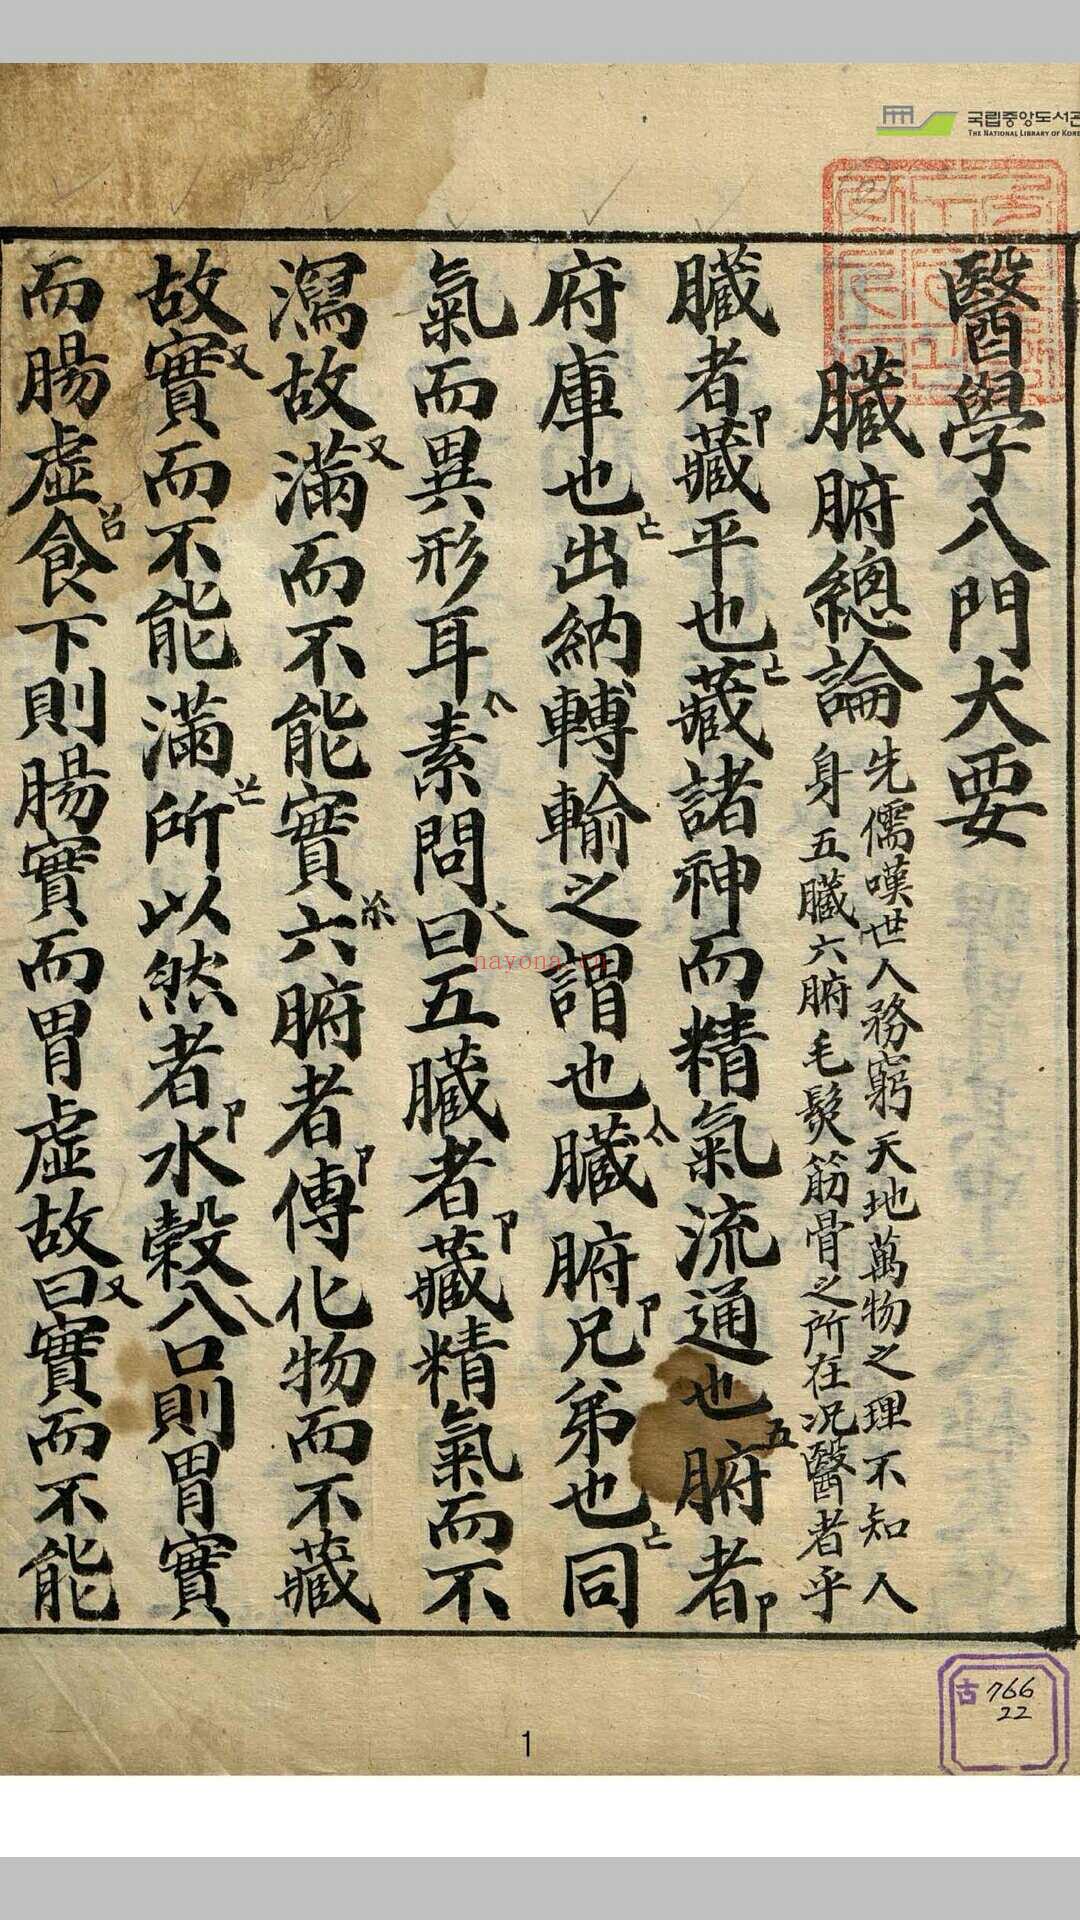 국립중앙도서관
THE NATIONAL LIBRARY OF KOREA
醫學入門大要
臟腑總論
先儒嘆世人務窮天地萬物之理不知人
身五臟六腑毛髮筋骨之所在况醫者乎
臟者卩藏平也亡藏諸神而精氣流通也五腑者卩
府庫也亡出納轉輸之謂也臟腑兄卩弟也亡同
氣而異形耳素問曰五臟者卩藏精氣而不
瀉故滿又而不能實六腑者卩傳化物而不藏
故實又而不能滿所以然者卩水穀入口則胃實
而腸虛食下則腸實而胃虛故曰又實而不能
nayona.cn
古 766
22
1